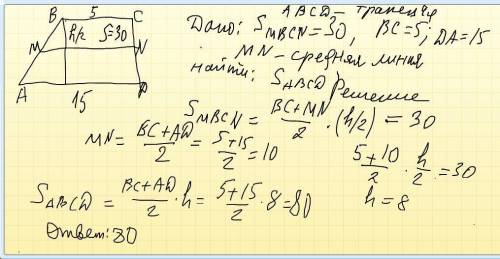 B 5 C
h/2 S=30
M N
A 15 D
Дано: ABCD – трапеция
S_MBCN = 30, BC = 5; DA = 15
MN – средняя линия
найти: S_ABCD
Решение
S_MBCN = (BC+MN)/2 · (h/2) = 30
MN = (BC+AD)/2 = (5+15)/2 = 10
(5+10)/2 · h/2 = 30
h = 8
S_ABCD = (BC+AD)/2 · h = (5+15)/2 · 8 = 80
Ответ: 80